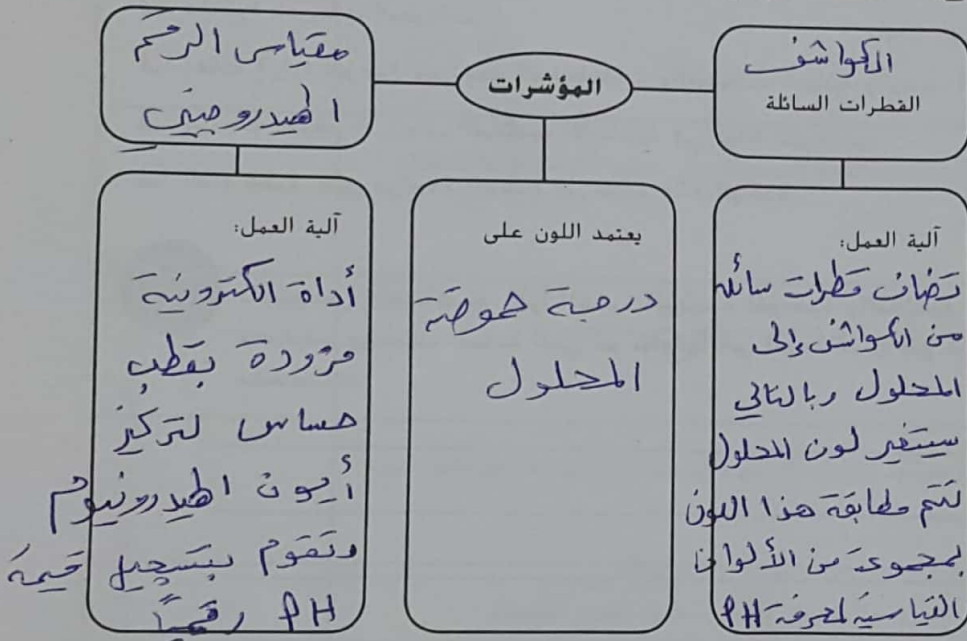 الكواشف
القطرات السائلة
المؤشرات
مقياس الرقم
الهيدروجيني
آلية العمل:
تضاف قطرات سائلة
من الكواشف إلى
المحلول وبالتالي
سيتغير لون المحلول
لتتم مطابقة هذا اللون
بمجموعة من الألوان
القياسية لمعرفة PH
يعتمد اللون على
درجة حموضة
المحلول
آلية العمل:
أداة الكترونية
مزودة بقطب
حساس لتركيز
أيون الهيدرونيوم
وتقوم بتسجيل قيمة
PH رقمياً